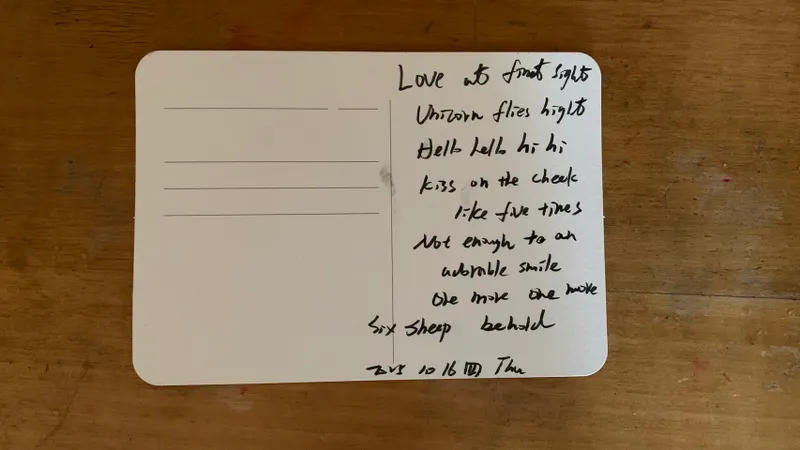 Love at first sight
Unicorn flies hight
Hello hello hi hi
Kiss on the cheek
like five times
Not enough to an
adorable smile
one more one more
Six sheep behold
2025 10 16 四 Thu